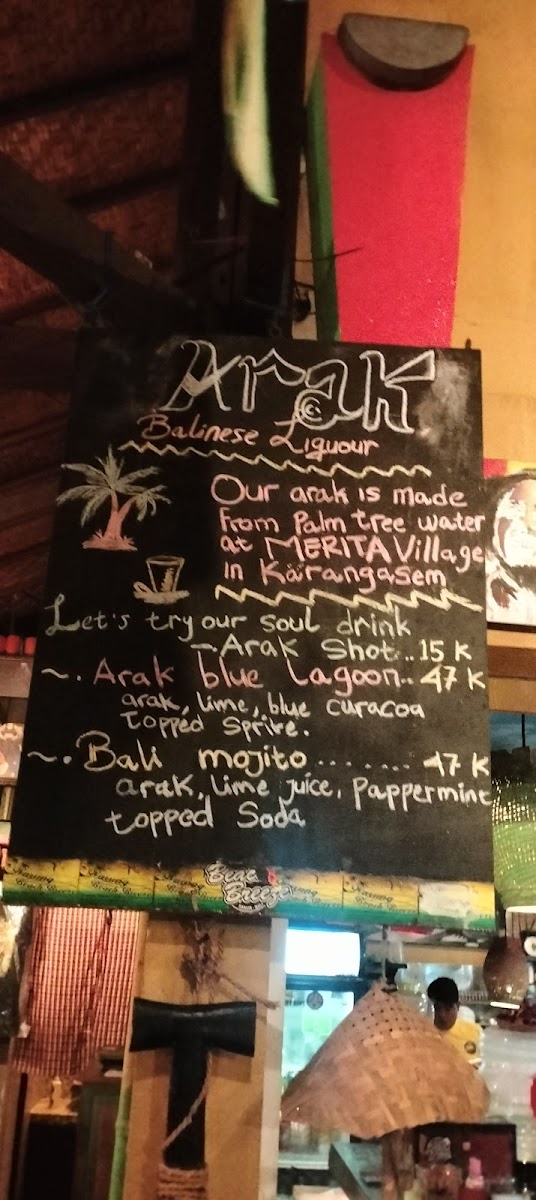 Arak
Balinese Liguour
Our arak is made
From Palm tree water
at MERITA Village
in Karangasem
Let's try our soul drink
- Arak Shot.. 15 K
~. Arak blue Lagoon.. 47 K
arak, lime, blue curacoa
topped Sprite.
~. Bali mojito ........ 47 K
arak, Lime juice, Pappermint
topped Soda
Breeze